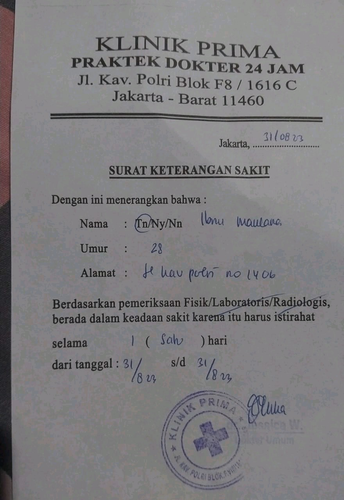 KLINIK PRIMA
PRAKTEK DOKTER 24 JAM
Jl. Kav. Polri Blok F8 / 1616 C
Jakarta - Barat 11460
Jakarta, 31/08 23
SURAT KETERANGAN SAKIT
Dengan ini menerangkan bahwa :
Nama : Tn/Ny/Nn Ibnu Maulana
Umur : 28
Alamat : Jl kav polri no 1406
Berdasarkan pemeriksaan Fisik/Laboratoris/Radiologis,
berada dalam keadaan sakit karena itu harus istirahat
selama 1 ( Satu ) hari
dari tanggal : 31/8 23 s/d 31/8 23
KLINIK PRIMA